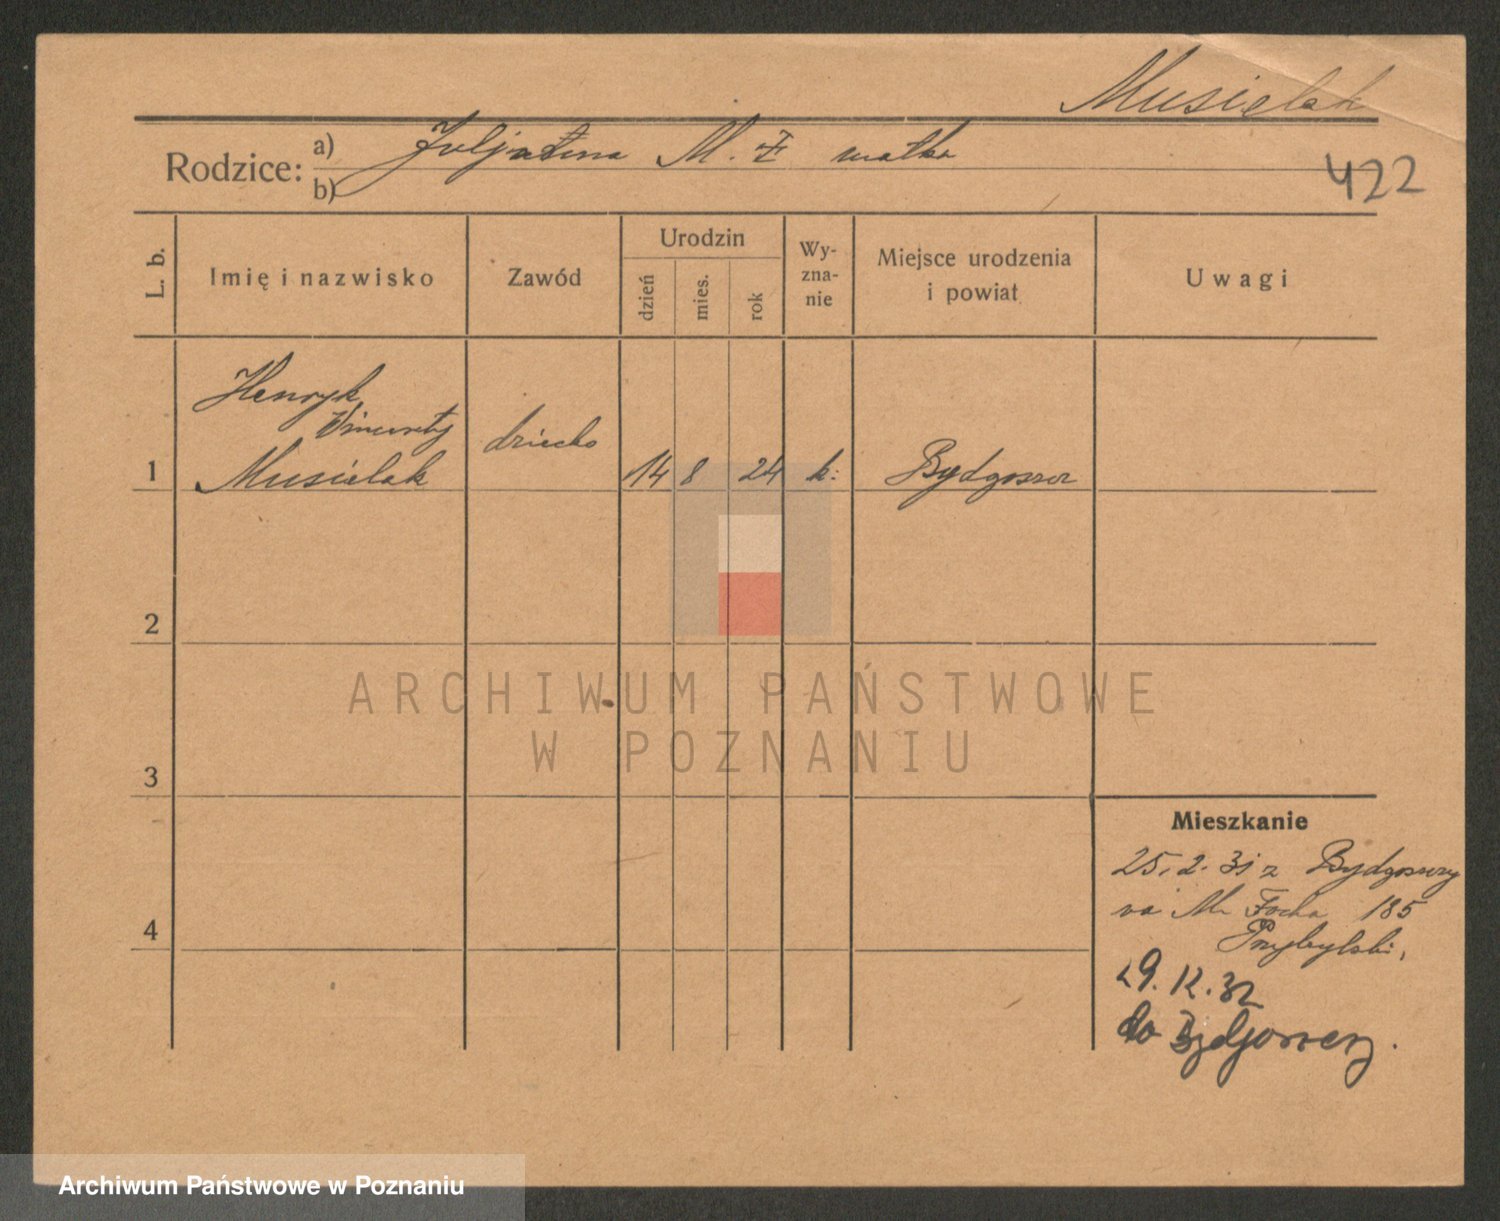 Musielak
Rodzice: a) M. matka
b)
422
L. b.
Imię i nazwisko
Zawód
Urodzin
dzień
mies.
rok
Wy-
zna-
nie
Miejsce urodzenia
i powiat
Uwagi
Henryk
Wincenty
Musielak
dziecko
1
14 8 24 k:
Bydgoszcz
2
ARCHIWUM PAŃSTWOWE
W POZNANIU
3
Mieszkanie
25.2.31 z Bydgoszczy
na M. Focha 185
Przybylski,
4
29.12.32
do Bydgoszczy.
Archiwum Państwowe w Poznaniu